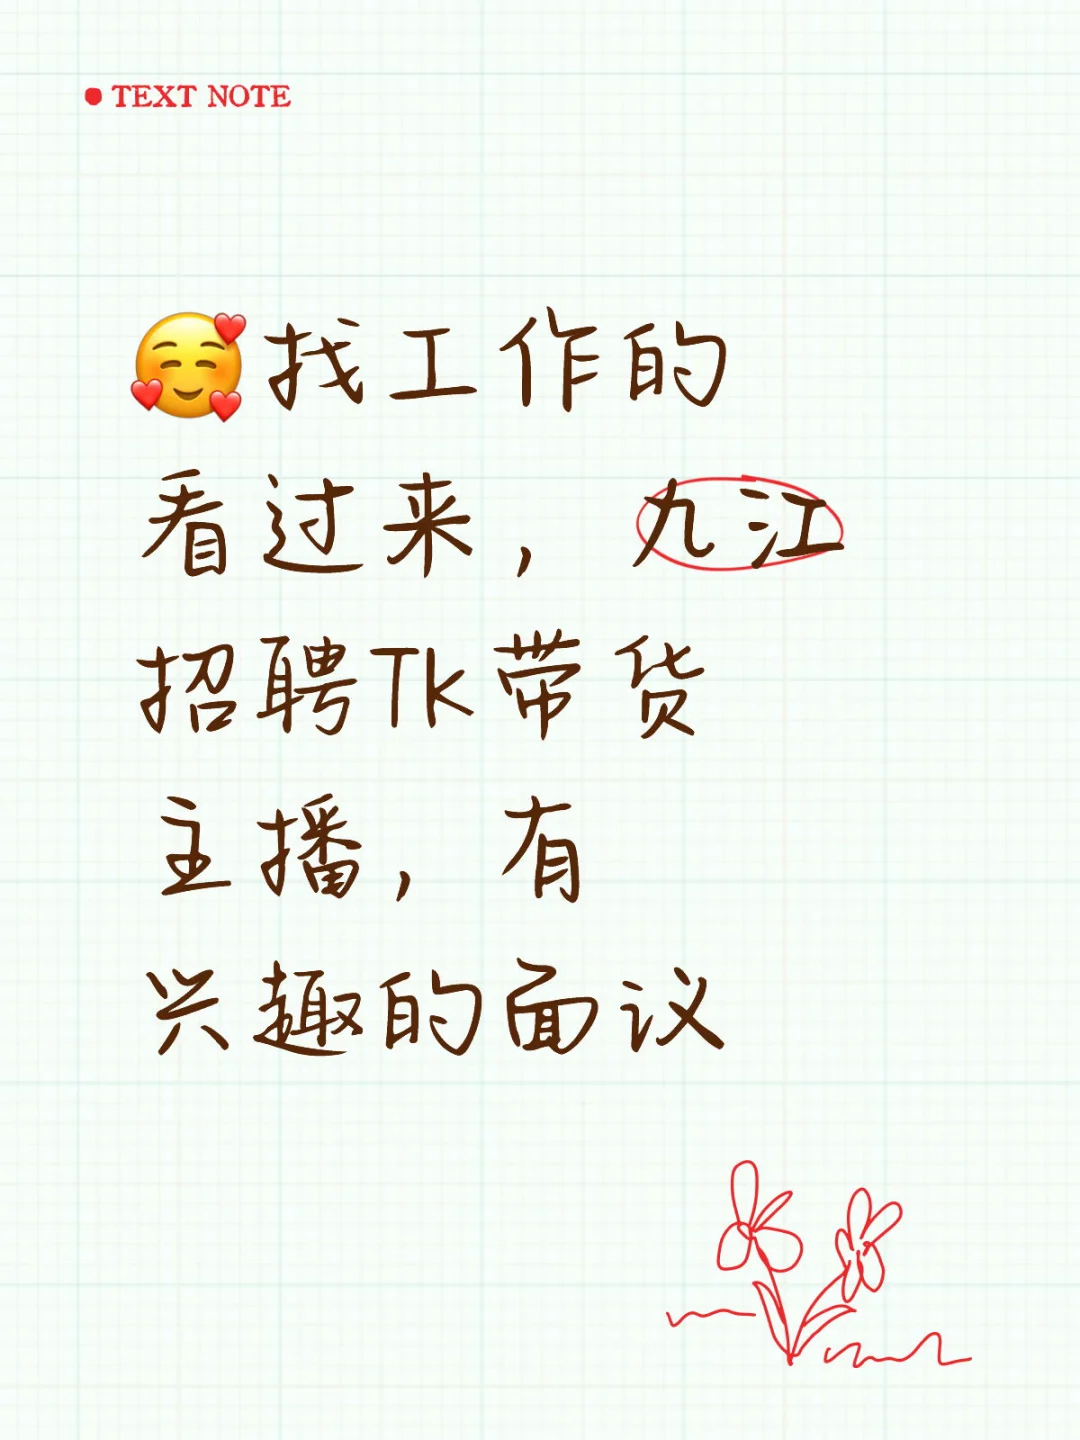 TEXT NOTE
🥰找工作的
看过来，九江
招聘Tk带货
主播，有
兴趣的面议